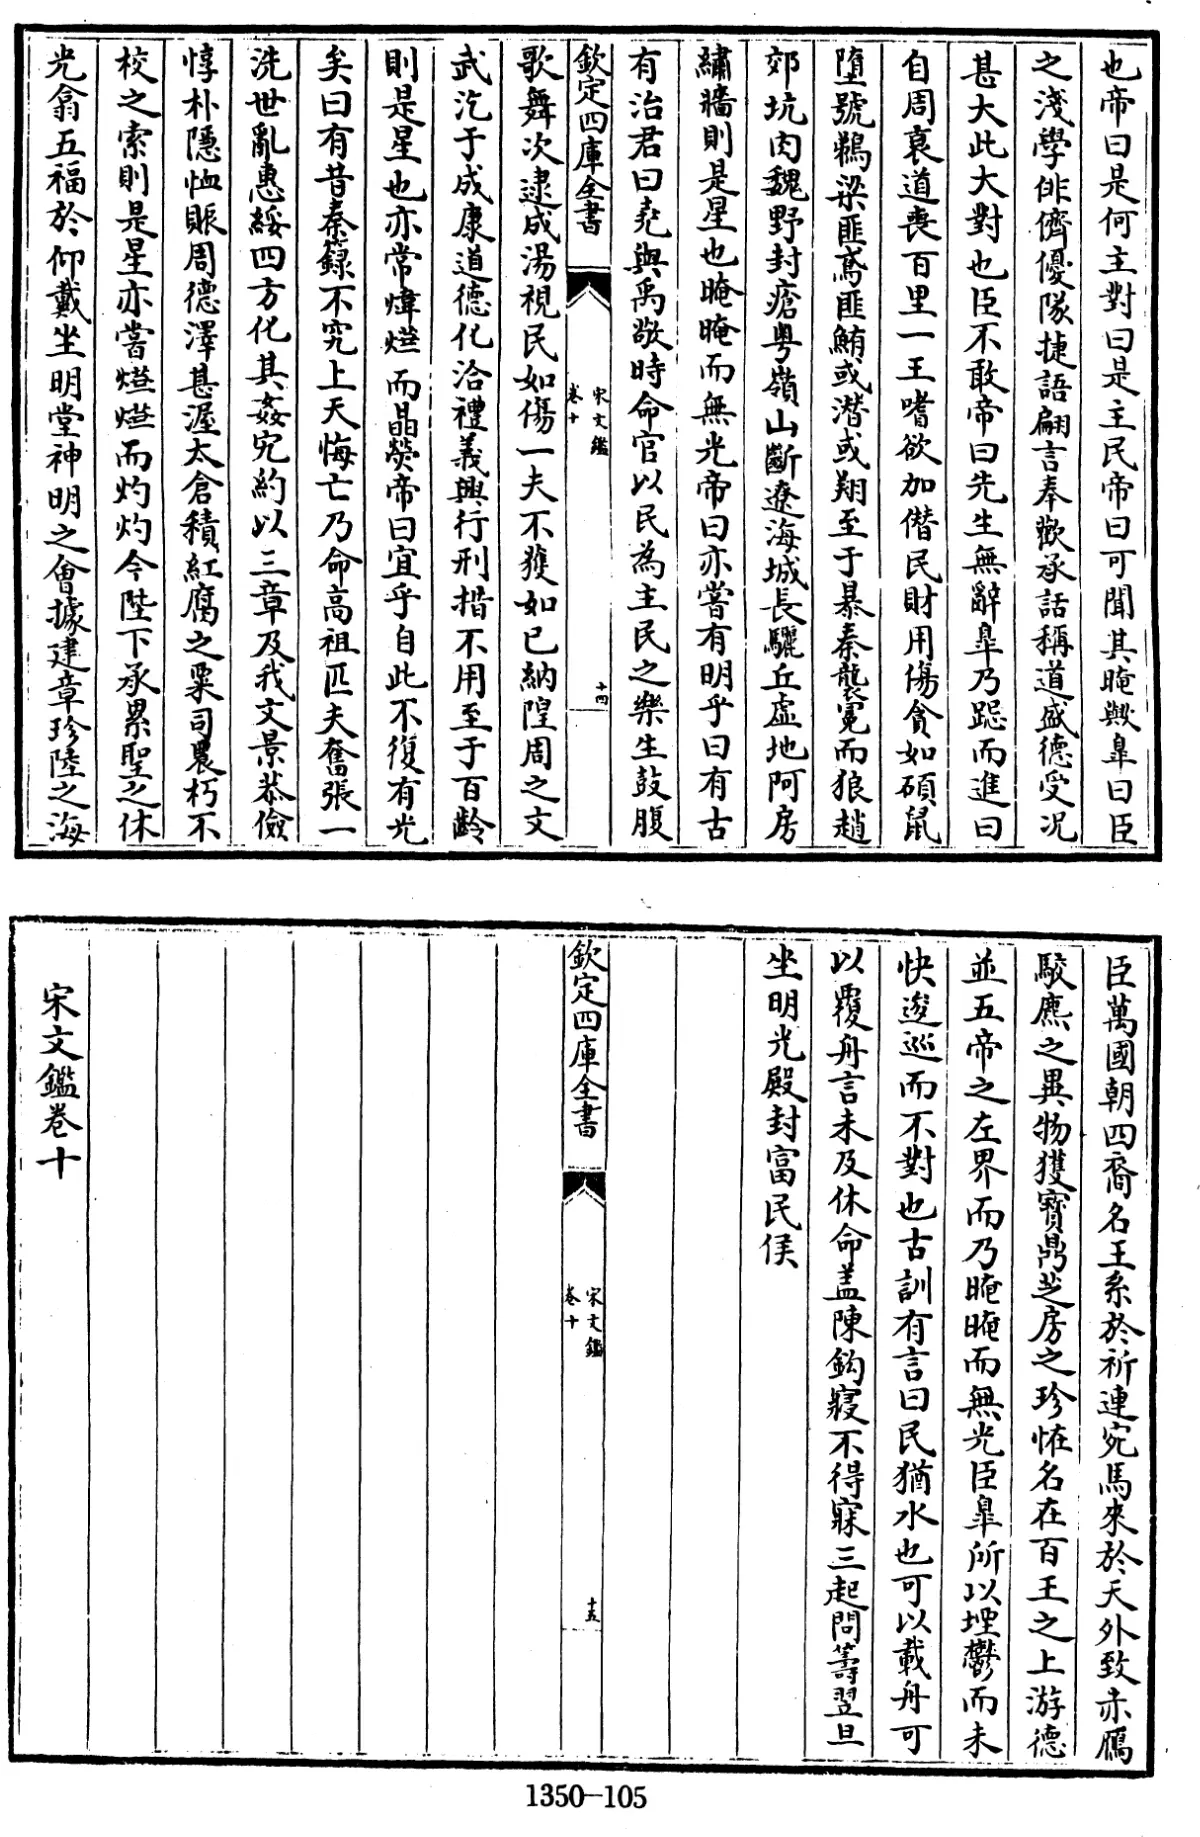 也帝曰是何主對曰是主民帝曰可聞其晻歟臯曰臣
之淺學俳儕優隊捷語翩言奉歡承話稱道盛德受况
甚大此大對也臣不敢帝曰先生無辭臯乃跽而進曰
自周衰道喪百里一王嗜欲加僣民財用傷貪如碩鼠
墮號鵜梁匪鳶匪鮪或潛或翔至于暴秦龍袞冕而狼趙
郊坑肉魏野封瘡粤嶺山斷遼海城長驪丘虛地阿房
繡牆則是星也晻晻而無光帝曰亦嘗有明乎曰有古
有治君曰堯與禹欽時命官以民為主民之樂生鼓腹
欽定四庫全書
宋文鑑
卷十
十四
歌舞次逮成湯視民如傷一夫不獲如已納隍周之文
武汔于成康道德化洽禮義興行刑措不用至于百齡
則是星也亦常煒煜而晶熒帝曰宜乎自此不復有光
矣曰有昔秦籙不究上天悔亡乃命高祖匹夫奮張一
洗世亂惠綏四方化其姦宄約以三章及我文景恭儉
惇朴隱恤賑周德澤甚渥太倉積紅腐之粟司農朽不
校之索則是星亦嘗熾熾而灼灼今陛下承累聖之休
光翕五福於仰戴坐明堂神明之會據建章珍陸之海
臣萬國朝四裔名王系於祈連宛馬來於天外致赤鴈
駮麃之異物獲寳鼎芝房之珍恠名在百王之上游德
並五帝之左界而乃晻晻而無光臣臯所以堙鬱而未
快逡巡而不對也古訓有言曰民猶水也可以載舟可
以覆舟言未及休命盖陳鈎寢不得寐三起問籌翌旦
坐明光殿封富民侯
欽定四庫全書
宋文鑑
卷十
十五
宋文鑑卷十
1350-105